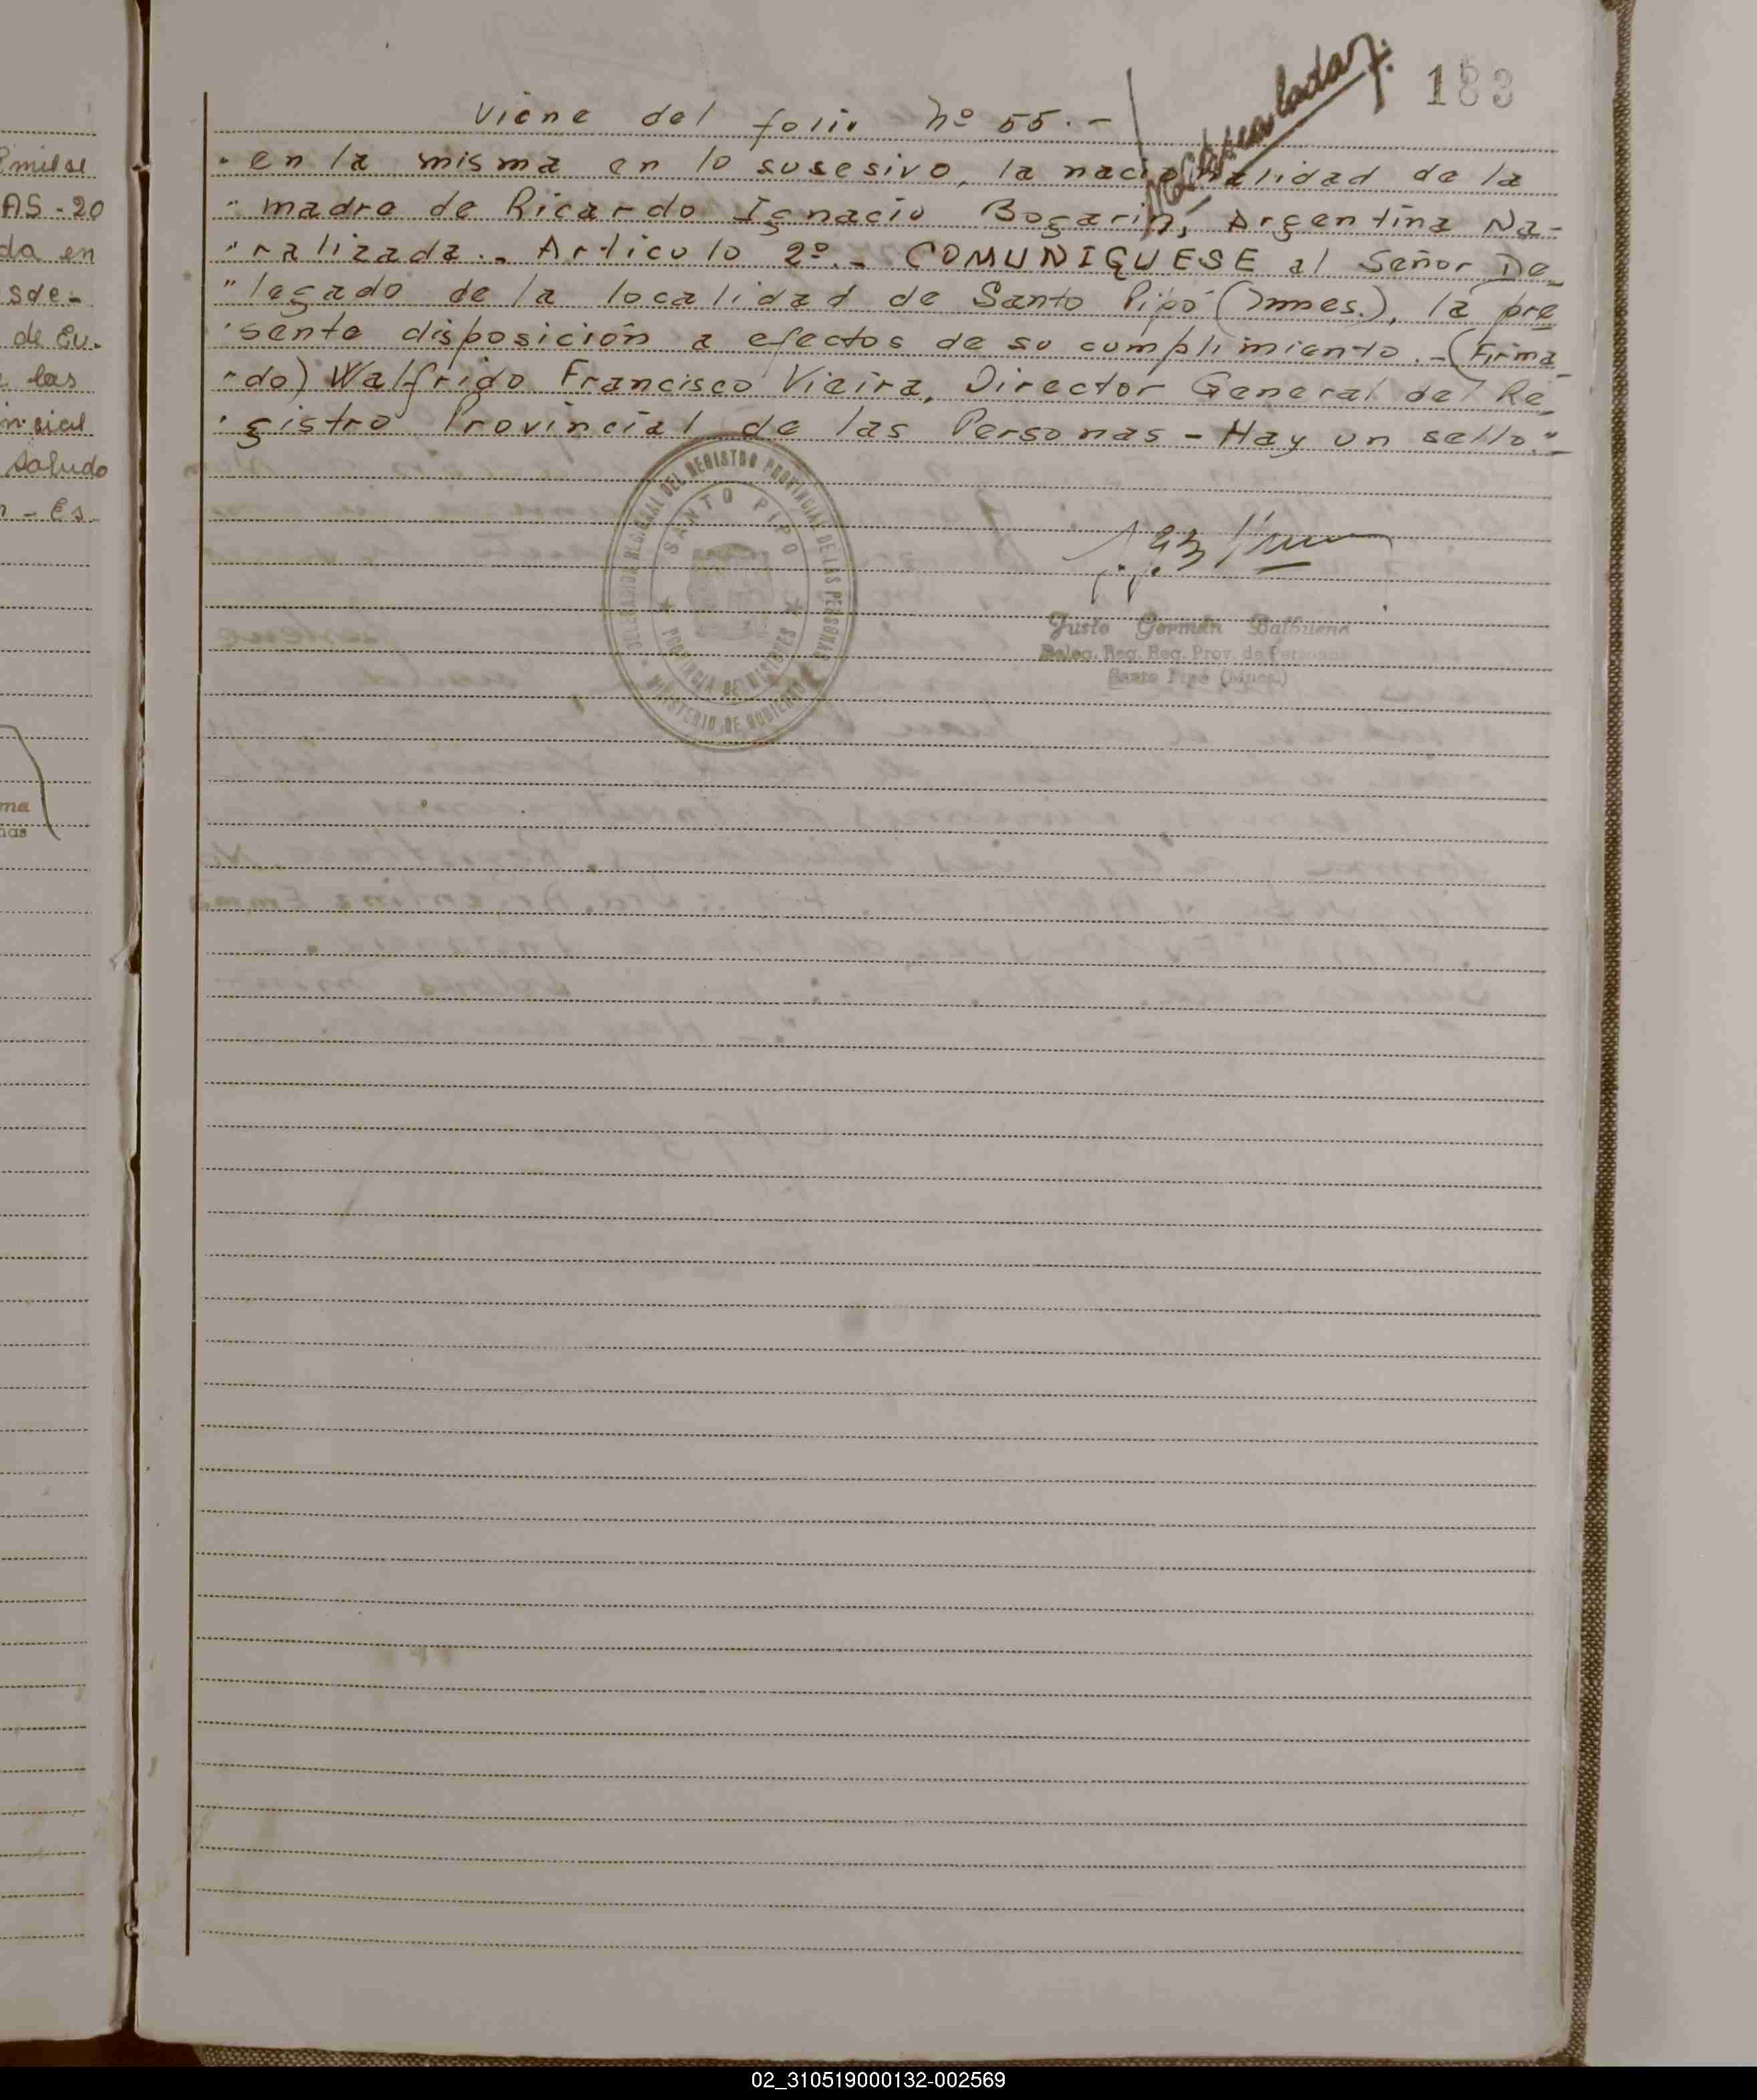 183
viene del folio Nº 55.-
"en la misma en lo susesivo, la nacionalidad de la
"madre de Ricardo Ignacio Bogarin, Argentina Na-
"ralizada.- Articulo 2º.- COMUNIQUESE al Señor De-
"legado de la localidad de Santo Pipó (Mnes.), la pre
"sente disposición a efectos de su cumplimiento.-(Firma
"do) Walfrido Francisco Vieira, Director General del Re-
"gistro Provincial de las Personas - Hay un sello."
DELEGADO REGIONAL DEL REGISTRO PROVINCIAL DE LAS PERSONAS
SANTO PIPO
PROVINCIA DE MISIONES
MINISTERIO DE GOBIERNO
Justo Germán Balbuena
Deleg. Reg. Reg. Prov. de Personas
Santo Pipó (Mnes.)
AS-20
da en
sde-
de Eu-
las
saludo
- Es-
ma
nas
02_310519000132-002569